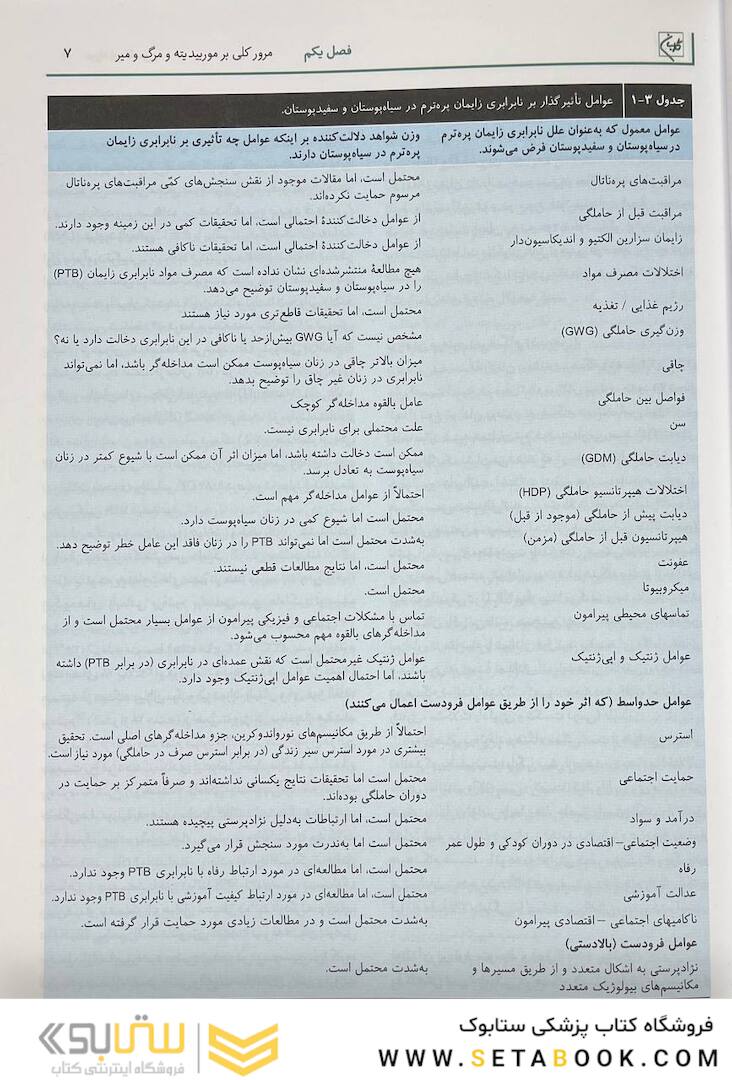 فصل یکم    مرور کلی بر موربیدیته و مرگ و میر    ۷
جدول ۳-۱    عوامل تأثیرگذار بر نابرابری زایمان پره‌ترم در سیاه‌پوستان و سفیدپوستان.
عوامل معمول که به‌عنوان علل نابرابری زایمان پره‌ترم    وزن شواهد دلالت‌کننده بر اینکه عوامل چه تأثیری بر نابرابری زایمان
در سیاه‌پوستان و سفیدپوستان فرض می‌شوند.    پره‌ترم در سیاه‌پوستان دارند.
مراقبت‌های پره‌ناتال    محتمل است، اما مقالات موجود از نقش سنجش‌های کمّی مراقبت‌های پره‌ناتال
مرسوم حمایت نکرده‌اند.
مراقبت قبل از حاملگی    از عوامل دخالت‌کنندهٔ احتمالی است، اما تحقیقات کمی در این زمینه وجود دارند.
زایمان سزارین الکتیو و اندیکاسیون‌دار    از عوامل دخالت‌کنندهٔ احتمالی است، اما تحقیقات ناکافی هستند.
اختلالات مصرف مواد    هیچ مطالعهٔ منتشرشده‌ای نشان نداده است که مصرف مواد نابرابری زایمان (PTB)
را در سیاه‌پوستان و سفیدپوستان توضیح می‌دهد.
رژیم غذایی / تغذیه    محتمل است، اما تحقیقات قاطع‌تری مورد نیاز هستند
وزن‌گیری حاملگی (GWG)    مشخص نیست که آیا GWG بیش‌ازحد یا ناکافی در این نابرابری دخالت دارد یا نه؟
چاقی    میزان بالاتر چاقی در زنان سیاه‌پوست ممکن است مداخله‌گر باشد، اما نمی‌تواند
نابرابری در زنان غیر چاق را توضیح بدهد.
فواصل بین حاملگی    عامل بالقوه مداخله‌گر کوچک
سن    علت محتملی برای نابرابری نیست.
دیابت حاملگی (GDM)    ممکن است دخالت داشته باشد، اما میزان اثر آن ممکن است با شیوع کمتر در زنان
سیاه‌پوست به تعادل برسد.
اختلالات هیپرتانسیو حاملگی (HDP)    احتمالاً از عوامل مداخله‌گر مهم است.
دیابت پیش از حاملگی (موجود از قبل)    محتمل است اما شیوع کمی در زنان سیاه‌پوست دارد.
هیپرتانسیون قبل از حاملگی (مزمن)    به‌شدت محتمل است اما نمی‌تواند PTB را در زنان فاقد این عامل خطر توضیح دهد.
عفونت    محتمل است، اما نتایج مطالعات قطعی نیستند.
میکروبیوتا    محتمل است.
تماسهای محیطی پیرامون    تماس با مشکلات اجتماعی و فیزیکی پیرامون از عوامل بسیار محتمل است و از
مداخله‌گرهای بالقوه مهم محسوب می‌شود.
عوامل ژنتیک و اپی‌ژنتیک    عوامل ژنتیک غیرمحتمل است که نقش عمده‌ای در نابرابری (در برابر PTB) داشته
باشند، اما احتمال اهمیت عوامل اپی‌ژنتیک وجود دارد.
عوامل حدواسط (که اثر خود را از طریق عوامل فرودست اعمال می‌کنند)
استرس    احتمالاً از طریق مکانیسم‌های نورواندوکرین، جزو مداخله‌گرهای اصلی است. تحقیق
بیشتری در مورد استرس سیر زندگی (در برابر استرس صرف در حاملگی) مورد نیاز است.
حمایت اجتماعی    محتمل است اما تحقیقات نتایج یکسانی نداشته‌اند و صرفاً متمرکز بر حمایت در
دوران حاملگی بوده‌اند.
درآمد و سواد    محتمل است، اما ارتباطات به‌دلیل نژادپرستی پیچیده هستند.
وضعیت اجتماعی–اقتصادی در دوران کودکی و طول عمر    محتمل است اما به‌ندرت مورد سنجش قرار می‌گیرد.
رفاه    محتمل است، اما مطالعه‌ای در مورد ارتباط رفاه با نابرابری PTB وجود ندارد.
عدالت آموزشی    محتمل است، اما مطالعه‌ای در مورد ارتباط کیفیت آموزشی با نابرابری PTB وجود ندارد.
ناکامیهای اجتماعی –اقتصادی پیرامون    به‌شدت محتمل است و در مطالعات زیادی مورد حمایت قرار گرفته است.
عوامل فرودست (بالادستی)
نژادپرستی به اشکال متعدد و از طریق مسیرها و    به‌شدت محتمل است.
مکانیسم‌های بیولوژیک متعدد
فروشگاه کتاب پزشکی ستابوک
WWW.SETABOOK.COM
ستابوک
فروشگاه اینترنتی کتاب